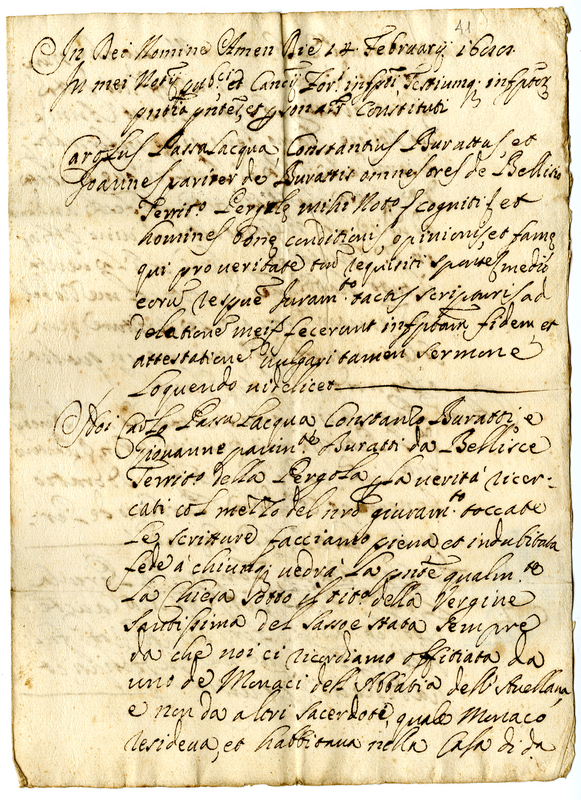 41
In Dei Nomine Amen Die 14 February
In mei Notʳ pubᶜⁱ et Cancʳ Forⁱ infpti Testiumq; infptoꝝ
pntia pnter, et psonalʳ Constituti
Carolus Passalacqua Constantius Burattus, et
Joannes pariter de Burattis omnes de Bellisio
Territº Pergulę mihi Notº cogniti, et
homines bonę conditionis, opinionis, et famę
qui pro veritate tm̄ requisiti medio
eorū Juramᵗº tactis scripturis ad
delationē meā fecerunt infptam fidem, et
attestationē Vulgari tamen sermone
Loquendo videlicet
Noi Carlo Passalacqua Constanzo Buratti, e
Giovanne parimᵗᵉ Buratti da Bellisce
Territº della Pergola p la verità ricer-
cati col mezzo del nrõ giuramᵗº toccate
le scritture facciamo piena et indubitata
fede à chiunq; vedrà la pñte qualmᵗᵉ
la Chiesa sotto il titº della Vergine
Santissima del Sasso è stata sempre
da che noi ci ricordiamo offitiata da
uno de Monaci dell'Abbatia dell'Avellana,
e non da altri sacerdoti, quale Monaco
resideva, et habbitava nella Casa di dª